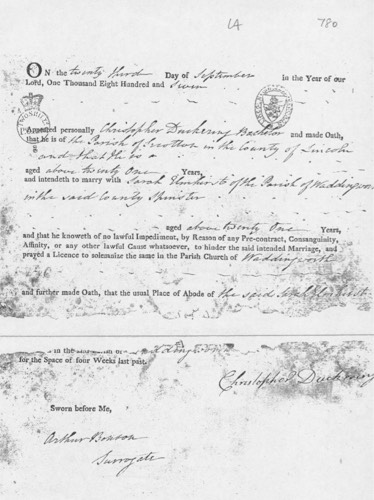 LA 780
ON the twenty third Day of September in the Year of our
Lord, One Thousand Eight Hundred and Seven
Appeared personally Christopher Duckering Bachelor and made Oath,
that he is of the Parish of Scotton in the County of Lincoln
and that he is a
aged above twenty One Years,
and intendeth to marry with Sarah of the Parish of
in the said County Spinster
aged above twenty One Years,
and that he knoweth of no lawful Impediment, by Reason of any Pre-contract, Consanguinity,
Affinity, or any other lawful Cause whatsoever, to hinder the said intended Marriage, and
prayed a Licence to solemnise the same in the Parish Church of Waddingworth
and further made Oath, that the usual Place of Abode of the said Sarah
in the of
for the Space of four Weeks last past.
Christopher Duckering
Sworn before Me,
Arthur Benson
Surrogate